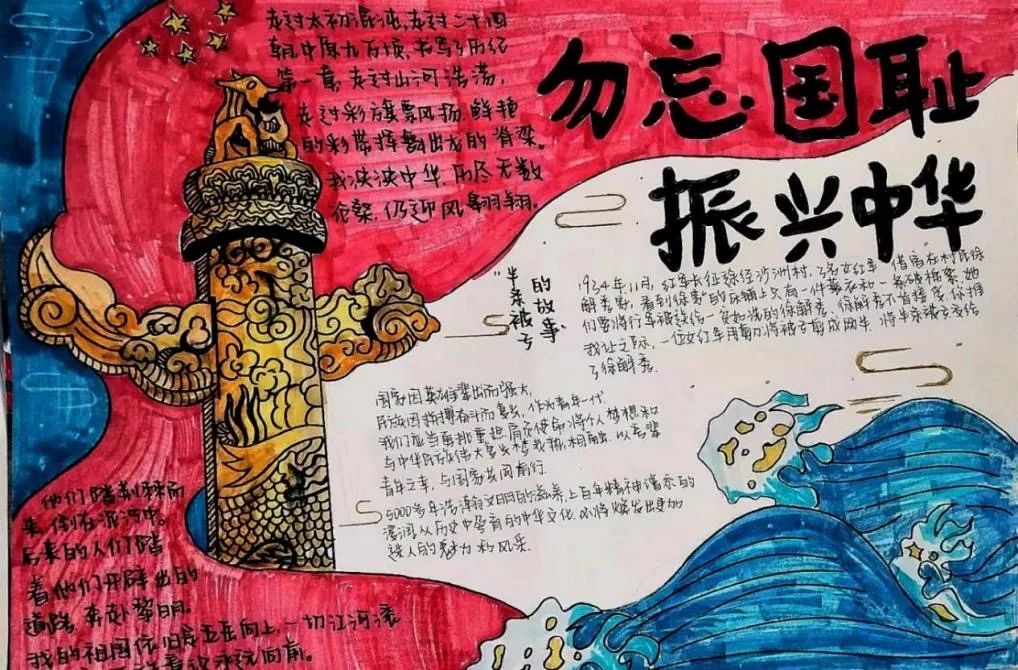 勿忘国耻
振兴中华
走过太初混沌,走过二十四
朝,中原九万顷,书写了历纪
第一章,走过山河浩荡,
走过彩旗飘风扬,鲜艳
的彩带挥舞出龙的脊梁。
我泱泱中华,历尽无数
沧桑,仍迎风翱翔。
"半条被子"
的故事、
1934年11月,红军长征途经沙洲村,3名女红军借宿在村民徐
解秀家,看到徐家的床铺上只有一件蓑衣和一条破棉絮,她
们要将行军被送给一贫如洗的徐解秀,徐解秀不肯接受,你推
我让之际,一位女红军用剪刀将被子剪成两半,将半条被子交给
了徐解秀.
国家因英雄辈出而强大,
民族因拼搏奋斗而复兴,作为青年一代
我们应当勇挑重担,肩负使命,将个人梦想和
与中华民族伟大复兴梦我振相融,以吾辈
青年之幸,与国家共同前行.
5000多年浩瀚文明的滋养,上百年精神谱系的
浸润,从历史中孕育的中华文化,必将焕发出更加
迷人的魅力和风采.
他们踏荆棘而
来,倒在泥泞中。
后来的人们踏
着他们开辟出的
道路,奔赴黎明。
我的祖国依旧是五岳向上,一切江河滚
永远向前。